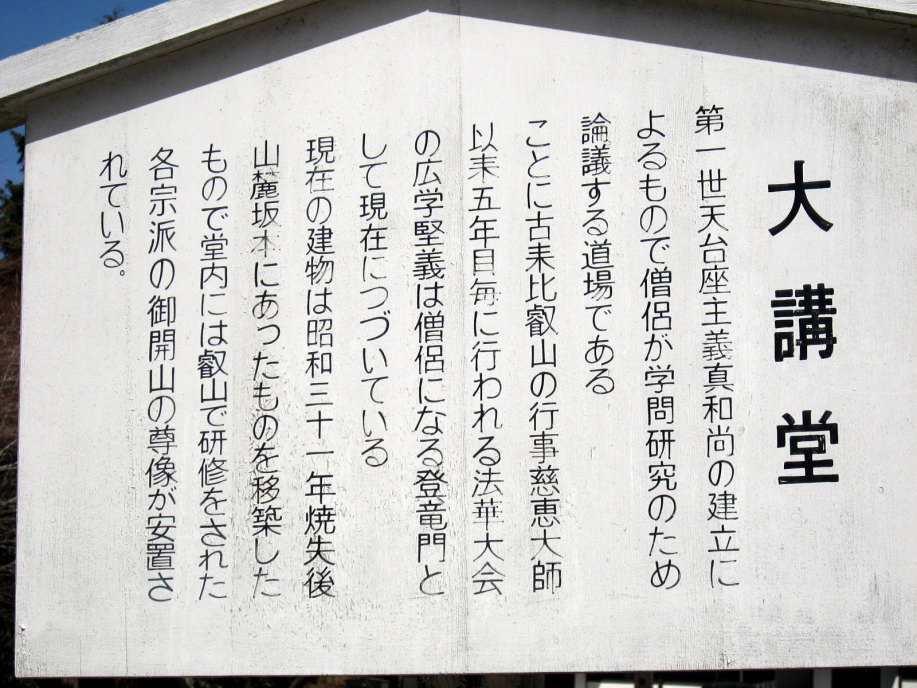 大講堂
第一世天台座主義真和尚の建立に
よるもので僧侶が学問研究のため
論議する道場である
ことに古来比叡山の行事慈恵大師
以来五年目毎に行われる法華大会
の広学竪義は僧侶になる登竜門と
して現在につづいている
現在の建物は昭和三十一年焼失後
山麓坂本にあったものを移築した
もので堂内には叡山で研修をされた
各宗派の御開山の尊像が安置さ
れている。